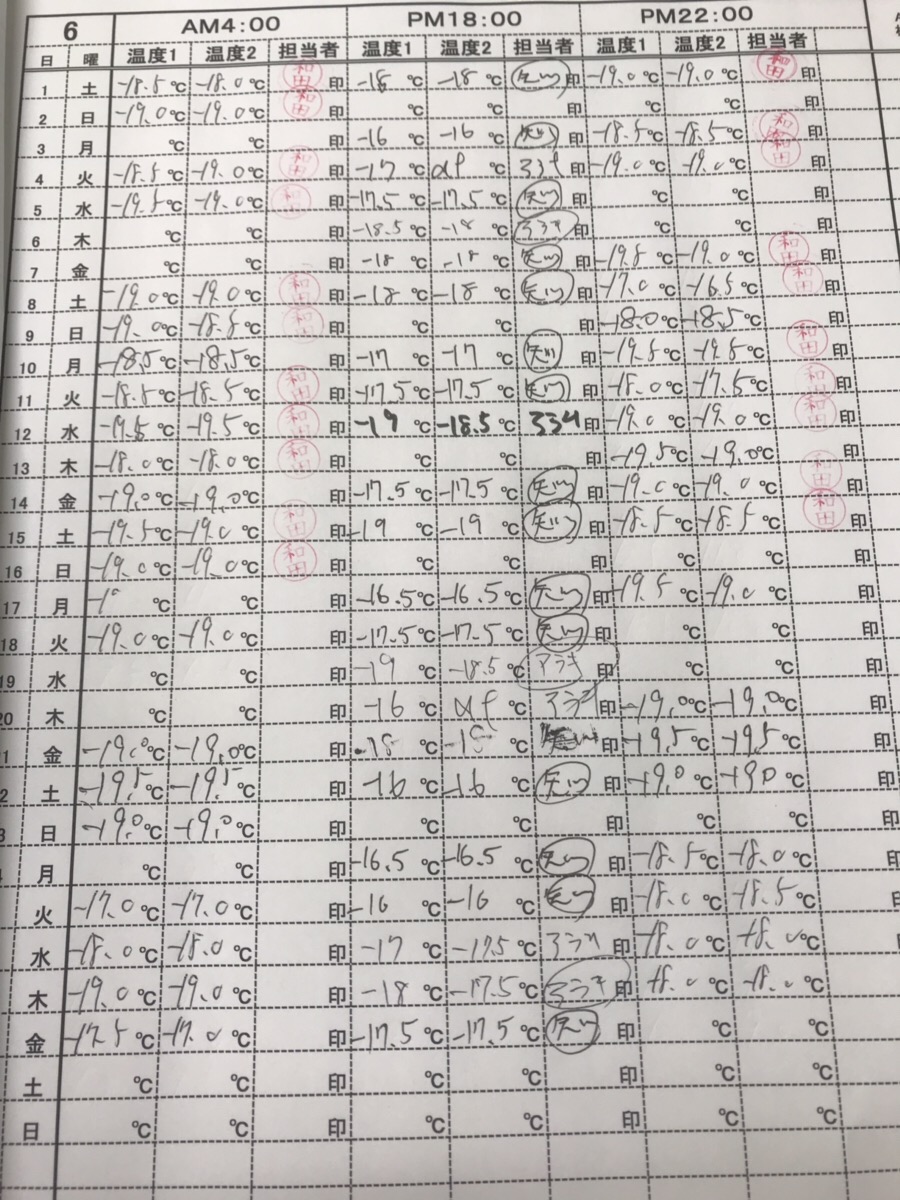 6 AM4:00 PM18:00 PM22:00
日 曜 温度1 温度2 担当者 温度1 温度2 担当者 温度1 温度2 担当者
1 土 -18.5℃ -18.0℃ 和田 印 -18℃ -18℃ 矢川 印 -19.0℃ -19.0℃ 和田 印
2 日 -19.0℃ -19.0℃ 和田 印 ℃ ℃ 印 ℃ ℃ 印
3 月 ℃ ℃ 印 -16℃ -16℃ 矢川 印 -18.5℃ -18.5℃ 和田 印
4 火 -18.5℃ -19.0℃ 和田 印 -17℃ αf ℃ 印 -19.0℃ -19.0℃ 和田 印
5 水 -19.5℃ -19.0℃ 和田 印 -17.5℃ -17.5℃ 矢川 印 ℃ ℃ 印
6 木 ℃ ℃ 印 -18.5℃ -18℃ アラキ 印 ℃ ℃ 印
7 金 ℃ ℃ 印 -18℃ -18℃ 矢川 印 -19.5℃ -19.0℃ 和田 印
8 土 -19.0℃ -19.0℃ 和田 印 -18℃ -18℃ 矢川 印 -17.0℃ -16.5℃ 和田 印
9 日 -19.0℃ -18.5℃ 和田 印 ℃ ℃ 印 -18.0℃ -18.5℃ 印
10 月 -18.5℃ -18.5℃ 印 -17℃ -17℃ 矢川 印 -19.5℃ -19.5℃ 和田 印
11 火 -18.5℃ -18.5℃ 和田 印 -17.5℃ -17.5℃ 矢川 印 -18.0℃ -17.5℃ 和田 印
12 水 -19.5℃ -19.5℃ 和田 印 -19℃ -18.5℃ アラキ 印 -19.0℃ -19.0℃ 和田 印
13 木 -18.0℃ -18.0℃ 和田 印 ℃ ℃ 印 -19.5℃ -19.0℃ 印
14 金 -19.0℃ -19.0℃ 印 -17.5℃ -17.5℃ 矢川 印 -19.0℃ -19.0℃ 和田 印
15 土 -19.5℃ -19.0℃ 和田 印 -19℃ -19℃ 矢川 印 -18.5℃ -18.5℃ 和田 印
16 日 -19.0℃ -19.0℃ 和田 印 ℃ ℃ 印 ℃ ℃ 印
17 月 ℃ ℃ 印 -16.5℃ -16.5℃ 矢川 印 -19.5℃ -19.0℃ 印
18 火 -19.0℃ -19.0℃ 印 -17.5℃ -17.5℃ 矢川 印 ℃ ℃ 印
19 水 ℃ ℃ 印 -19℃ -18.5℃ アラキ 印 ℃ ℃ 印
20 木 ℃ ℃ 印 -16℃ αf ℃ アラキ 印 -19.0℃ -19.0℃ 印
1 金 -19.0℃ -19.0℃ 印 -18℃ -18℃ 印 -19.5℃ -19.5℃ 印
2 土 -19.5℃ -19.5℃ 印 -16℃ -16℃ 矢川 印 -19.0℃ -19.0℃ 印
3 日 -19.0℃ -19.0℃ 印 ℃ ℃ 印 ℃ ℃ 印
月 ℃ ℃ 印 -16.5℃ -16.5℃ 矢川 印 -18.5℃ -18.0℃ 印
火 -17.0℃ -17.0℃ 印 -16℃ -16℃ 矢川 印 -18.0℃ -18.5℃ 印
水 -18.0℃ -18.0℃ 印 -17℃ -17.5℃ アラキ 印 -18.0℃ -18.0℃ 印
木 -19.0℃ -19.0℃ 印 -18℃ -17.5℃ アラキ 印 -18.0℃ -18.0℃ 印
金 -17.5℃ -17.0℃ 印 -17.5℃ -17.5℃ 矢川 印 ℃ ℃ 印
土 ℃ ℃ 印 ℃ ℃ 印 ℃ ℃ 印
日 ℃ ℃ 印 ℃ ℃ 印 ℃ ℃ 印